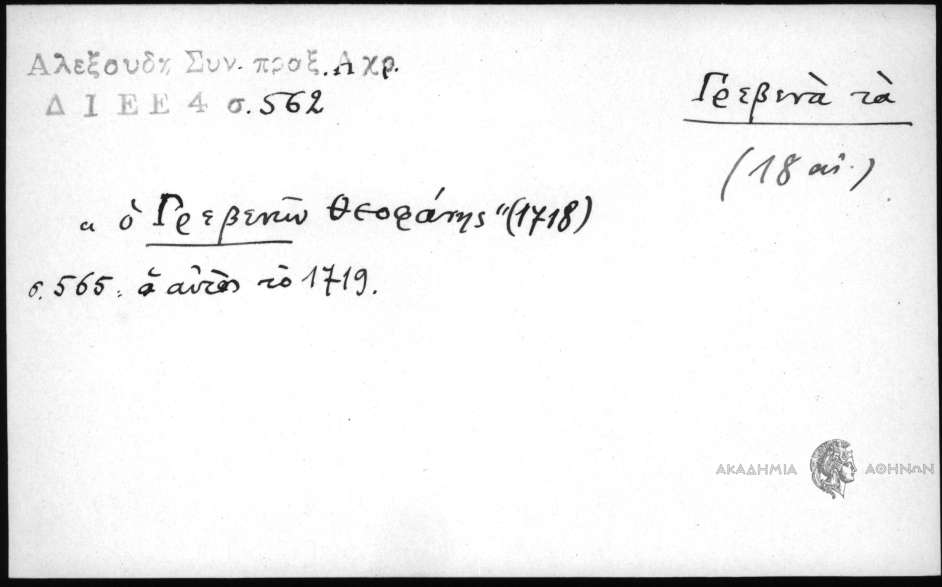 Αλεξουδη Συν. πραξ. Αχρ.
Δ Ι Ε Ε 4 σ. 562
Γρεβενὰ τὰ
(18 αἰ.)
"ὁ Γρεβενῶν Θεοφάνης" (1718)
σ. 565: ὁ αὐτὸς τὸ 1719.
ΑΚΑΔΗΜΙΑ ΑΘΗΝΩΝ